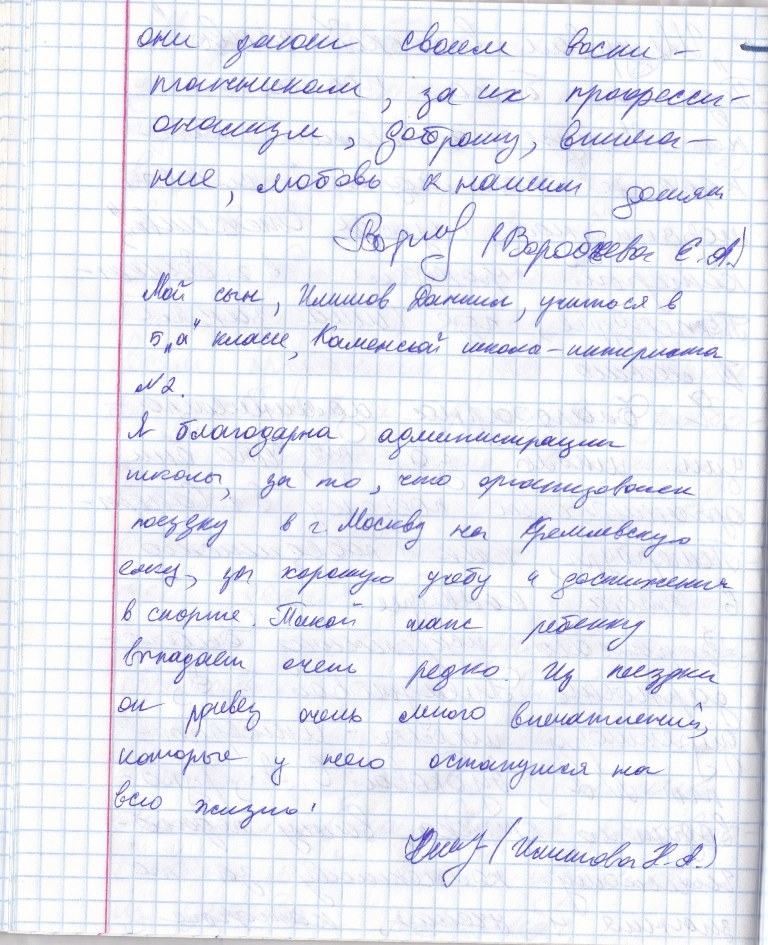 они дают своим воспи-
танникам, за их професси-
онализм, доброту, внима-
ние, любовь к нашим детям
(Воробьева Е.А.)
Мой сын, Данил, учиться в
5 „а" класе, Каменской школа-интерната
№2.
Я благодарна администрации
школы, за то, что организовали
поездку в г. Москву на Кремлевскую
елку, за хорошую учебу и достижения
в спорте. Такой шанс ребенку
выпадает очень редко. Из поездки
он привез очень много впечатлений,
которые у него останутся на
всю жизнь!
Н.А.)